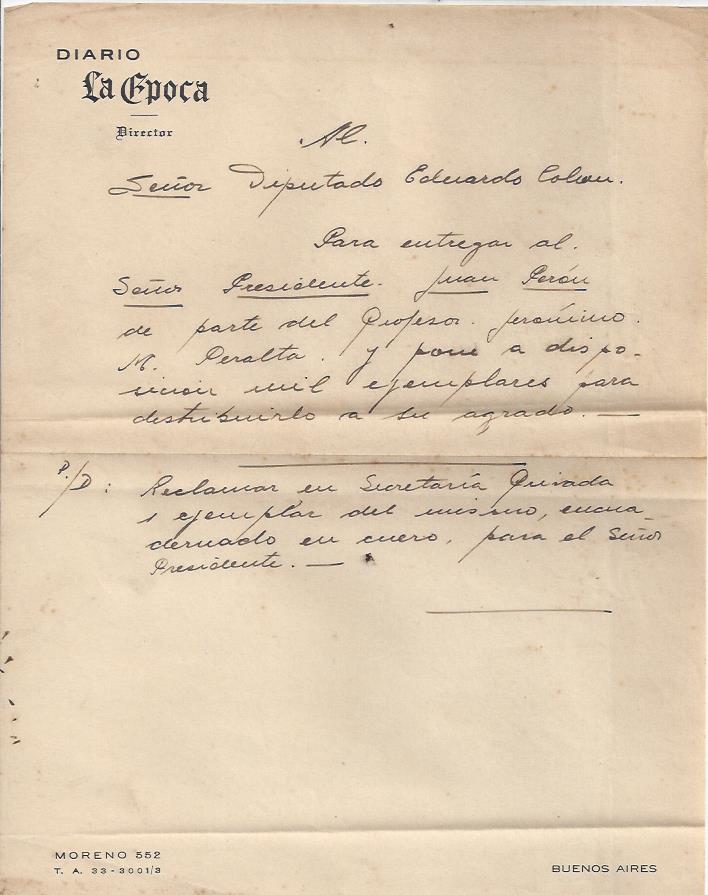 DIARIO
La Epoca
Director
Al.
Señor Diputado Eduardo Colom.
Para entregar al.
Señor Presidente. Juan Perón
de parte del Profesor. Jerónimo.
M. Peralta. y pone a dispo-
sicion mil ejemplares para
distribuirlo a su agrado. —
P./D: Reclamar en Secretaría Privada
1 ejemplar del mismo, encua-
dernado en cuero, para el Señor
Presidente. —
MORENO 552
T. A. 33-3001/3
BUENOS AIRES